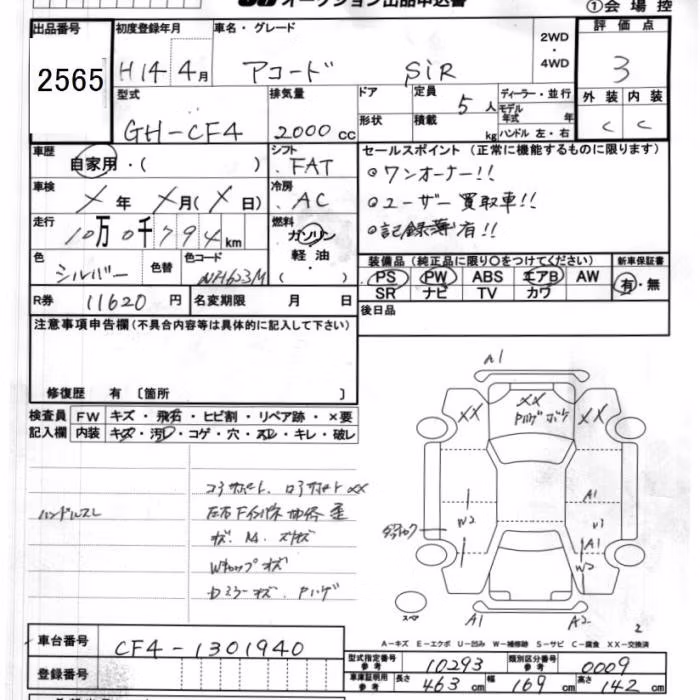 オークション出品申込書
①会場控
出品番号
2565
初度登録年月
H14 4月
車名・グレード
アコード SiR
2WD
・
4WD
評価点
3
外装 内装
C C
型式
GH-CF4
排気量
2000 cc
ドア
形状
定員
5人
積載
kg
ディーラー・並行
モデル
年式 年
ハンドル 左・右
車歴
自家用・( )
シフト
FAT
車検
X 年 X月(X 日)
冷房
AC
走行
10万0千794km
燃料
ガソリン
軽油
( )
色
シルバー
色替
色コード
NH623M
R券 11620 円
名変期限 月 日
セールスポイント(正常に機能するものに限ります)
ワンオーナー!!
ユーザー買取車!!
記録簿有!!
装備品(純正品に限り○をつけてください)
新車保証書
PS PW ABS エアB AW
SR ナビ TV カワ
有・無
後日品
注意事項申告欄(不具合内容等は具体的に記入して下さい)
修復歴 有 〔箇所 〕
検査員
記入欄
FW キズ・飛石・ヒビ割・リペア跡・×要
内装 キズ・汚レ・コゲ・穴・スレ・キレ・破レ
ハンドルスレ
コアサポート
XX
Wキャップ キズ
A1
XX
XX
XX
A1
W2
A1
W2
スペア
A1
A2
2
A-キズ E-エクボ U-凹み W-補修跡 S-サビ C-腐食 XX-交換済
車台番号
CF4-1301940
登録番号
型式指定番号
参考
10293
類別区分番号
参考
0009
車庫証明用
参考
長さ 463 cm 幅 169 cm 高さ 142 cm